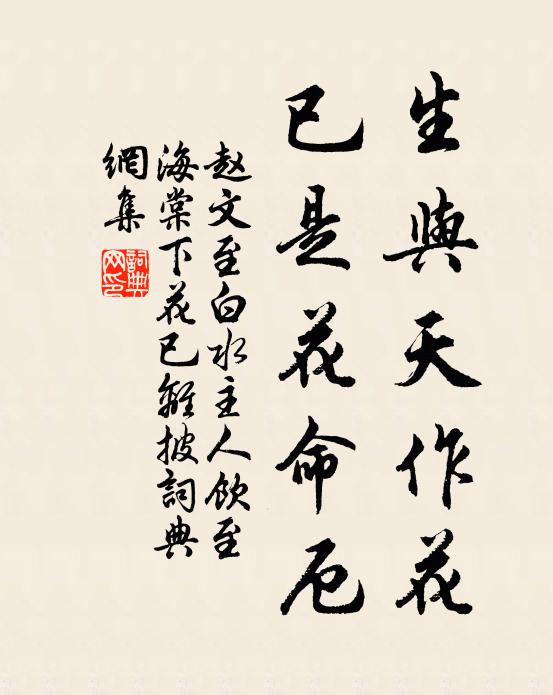 生與天作花
已是花命厄
赵文至白水主人飲至
海棠下花已離披詞典
網集
詞典
网印